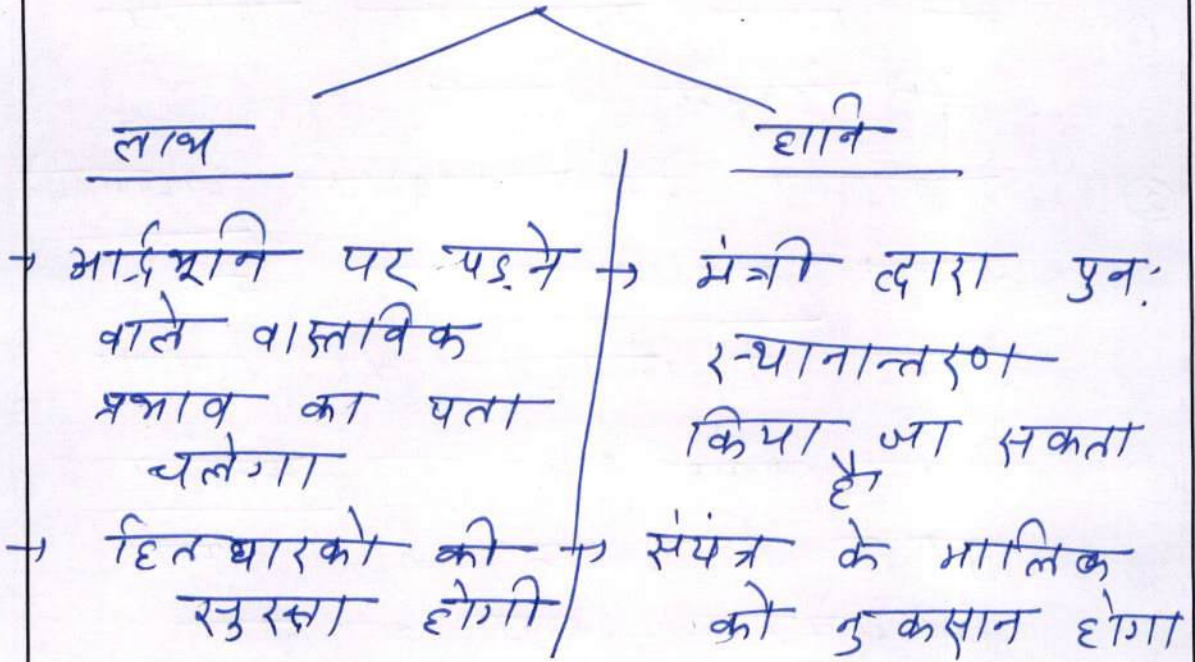 लाभ
→ आर्द्रभूमि पर पड़ने
वाले वास्तविक
प्रभाव का पता
चलेगा
→ हितधारको की
सुरक्षा होगी
हानि
→ मंत्री द्वारा पुन:
स्थानान्तरण
किया जा सकता
है
→ संयंत्र के मालिक
को नुकसान होगा